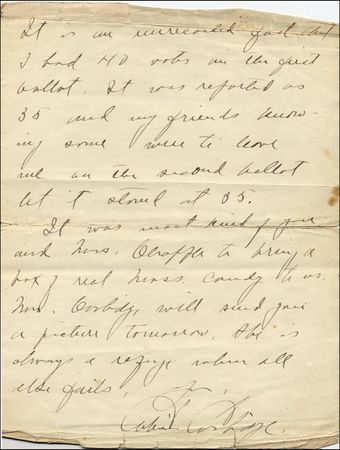 It is an unrecorded fact that
I had 40 votes on the first
ballot. It was reported as
35 and my friends know-
ing some were to leave
me on the second ballot
let it stand at 35.
It was most kind of you
and Mrs. to bring a
box of real Mass. candy to us.
Mrs. Coolidge will send you
a picture tomorrow. She is
always a refuge when all
else fails.
Calvin Coolidge.